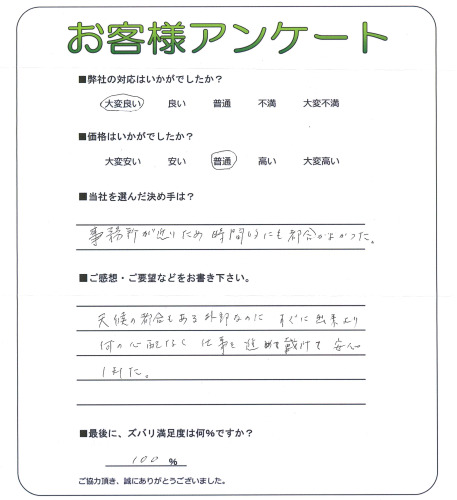 お客様アンケート
■弊社の対応はいかがでしたか？
大変良い 良い 普通 不満 大変不満
■価格はいかがでしたか？
大変安い 安い 普通 高い 大変高い
■当社を選んだ決め手は？
事務所が近いため 時間的にも都合がよかった。
■ご感想・ご要望などをお書き下さい。
天候の都合もある外部なのに すぐに出来より
何の心配もなく 仕事を進めて戴けて 安心
しました。
■最後に、ズバリ満足度は何%ですか？
100 %
ご協力頂き、誠にありがとうございました。